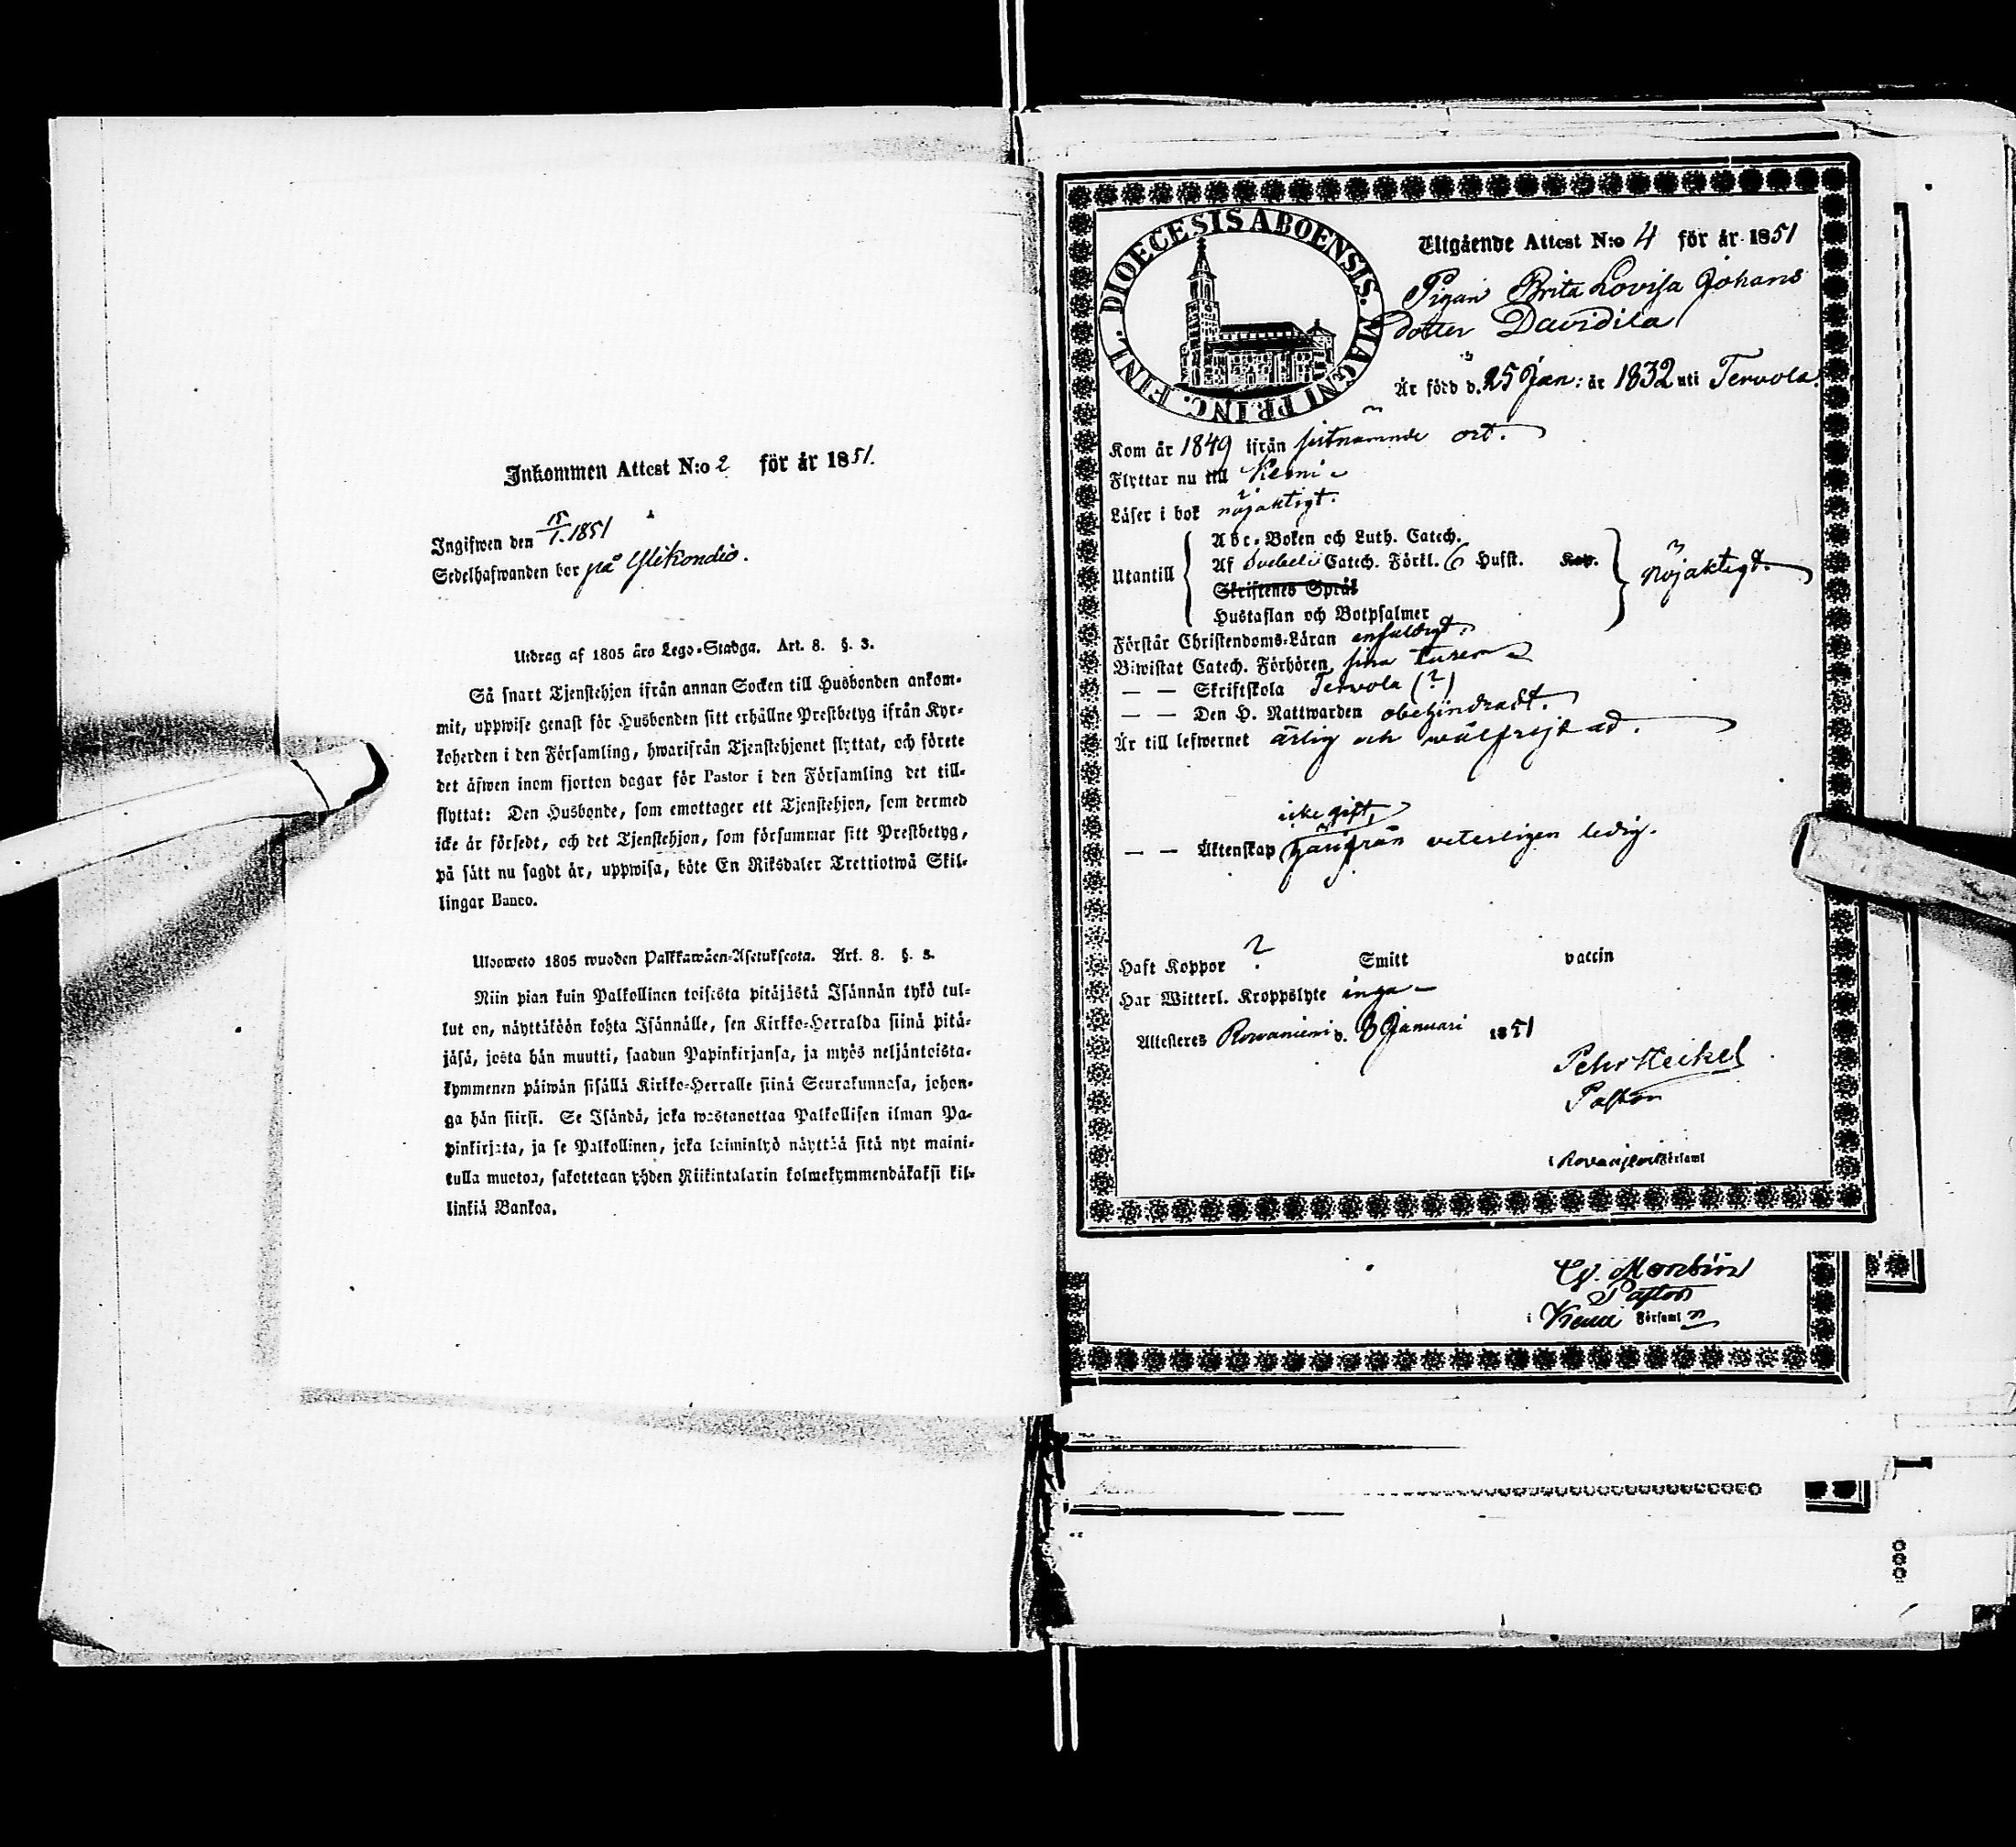 Inkommen Attest N:o 2 för år 1851.
Ingifwen den 15/1. 1851
Sedelhafwanden bor på Ylikondio.
Utdrag af 1805 års Lego-Stadga. Art. 8. §. 3.
Så snart Tjenstehjon ifrån annan Socken till Husbonden ankom-
mit, uppwise genast för Husbonden sitt erhållne Prestbetyg ifrån Kyr-
koherden i den Församling, hwarifrån Tjenstehjonet flyttat, och förete
det äfwen inom fjorton dagar för Pastor i den Församling det till-
flyttat: Den Husbonde, som emottager ett Tjenstehjon, som dermed
icke är försedt, och det Tjenstehjon, som försummar sitt Prestbetyg,
på sätt nu sagdt är, uppwisa, böte En Riksdaler Trettiotwå Skil-
lingar Banco.
Ulosweto 1805 wuoden Palkkawäen-Asetuksesta. Art. 8. §. 3.
Niin pian kuin Palkollinen toisesta pitäjästä Isännän tykö tul-
lut on, näyttäköön kohta Isännälle, sen Kirkko-Herralda siinä pitä-
jäsä, josta hän muutti, saadun Papinkirjansa, ja myös neljäntoista-
kymmenen päiwän sisällä Kirkko-Herralle siinä Seurakunnasa, johon-
ga hän siirsi. Se Isändä, joka wastanottaa Palkollisen ilman Pa-
pinkirjata, ja se Palkollinen, joka laiminlyö näyttää sitä nyt maini-
tulla muotoa, sakotetaan yhden Riikintalarin kolmekymmendäkaksi kil-
linkiä Bankoa.
DIOECESIS ABOENSIS. MAGNI PRINC. FINL.
Utgående Attest N:o 4 för år 1851
Pigan Brita Lovisa Johans
dotter Davidila
Är född d. 25 Jan: år 1832 uti Tervola.
Kom år 1849 ifrån sistnämnde ort.
Flyttar nu till Kemi
Läser i bok nöjaktigt.
Utantill
Abc-Boken och Luth. Catech.
Af Svebelii Catech. Förkl. 6 Hufst. Kap.
Skriftenes Språk
Hustaflan och Botpsalmer
nöjaktigt.
Förstår Christendoms-Läran enfaldigt.
Biwistat Catech. Förhören sina turer
— — Skriftskola Tervola (?)
— — Den H. Nattwarden obehindradt.
Är till lefwernet ärlig och wälfrejdad.
icke gift,
— — Äktenskap härifrån veterligen ledig.
Haft Koppor ? Smitt vaccin
Har Witterl. Kroppslyte inga
Attesteres Rovaniemi d. 8 Januari 1851
Pehr Heikel
Pastor
i Rovaniemi Församl
Pastor
i Kemi Församl